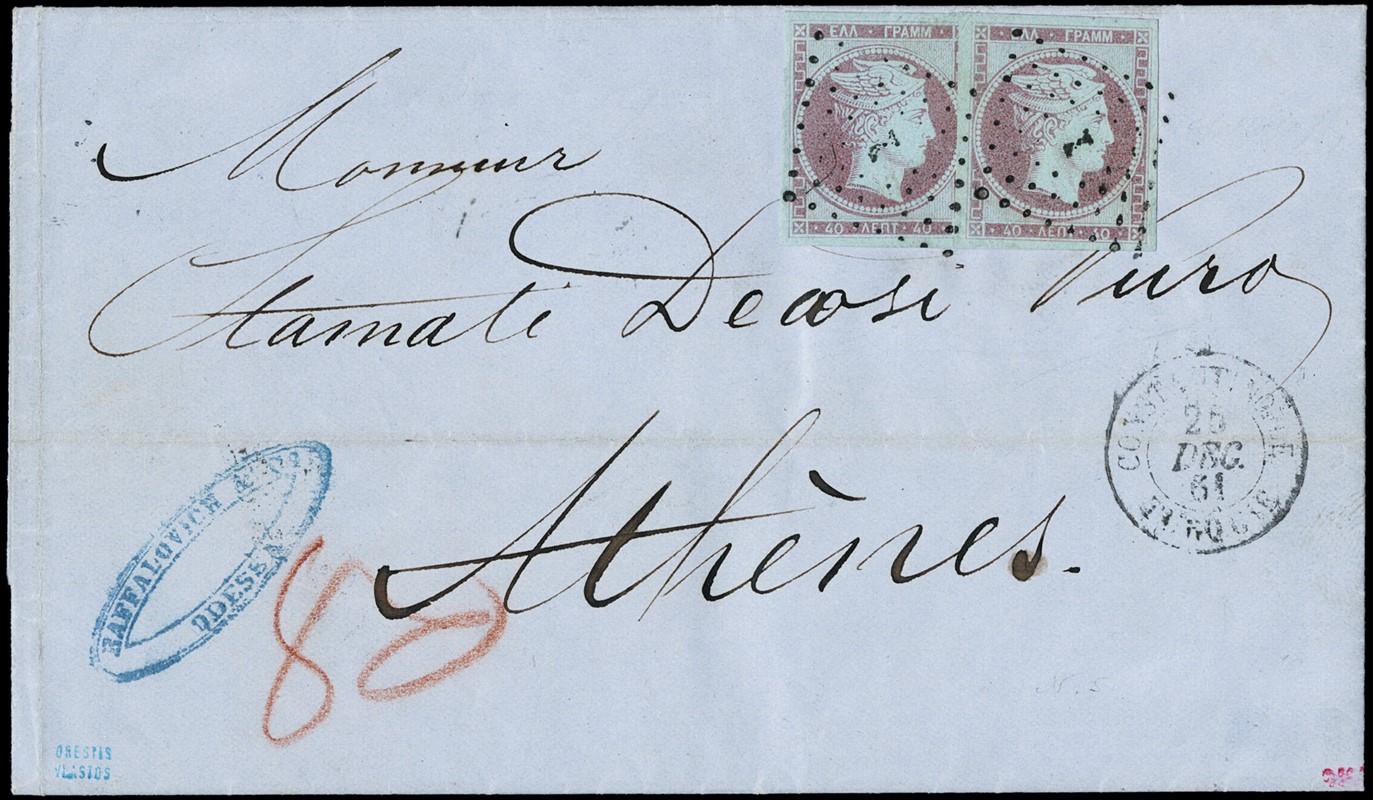 ΕΛΛ ΓΡΑΜΜ ΕΛΛ ΓΡΑΜΜ
40 ΛΕΠΤ 40 40 ΛΕΠΤ 40
Monsieur
Stamati Decosi Vuro
Athènes.
CONSTANTINOPLE
25
DEC.
61
TURQUIE
RAFFALOVICH & Co
ODESSA
80
ORESTIS
VLASTOS
N. 5